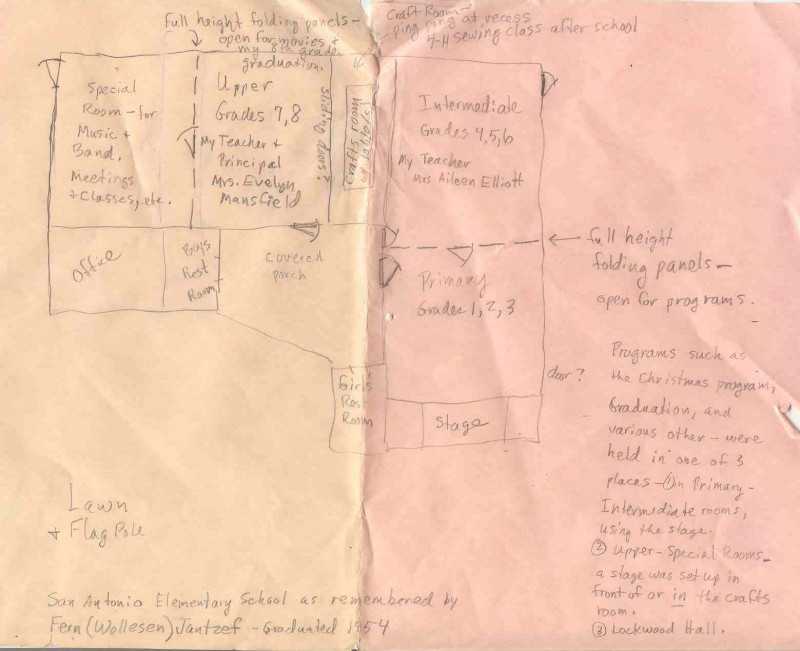 Full height folding panels-
open for movies +
my 8th grade
graduation.
Craft Room -
ping pong at recess
4-H sewing class after school
Special
Room - for
Music +
Band,
Meetings
+ Classes, etc.
Upper
Grades 7,8
My Teacher +
Principal
Mrs. Evelyn
Mansfield
sliding doors?
Crafts room
w/ table(s)
Intermediate
Grades 4,5,6
My Teacher
Mrs Aileen Elliott
Office
Boys
Rest
Room
covered
porch
Primary
Grades 1, 2, 3
full height
folding panels -
open for programs.
Girls
Rest
Room
Stage
door?
Programs such as
the Christmas program,
Graduation, and
various other - were
held in one of 3
places - ① in Primary -
Intermediate rooms,
using the stage.
② Upper - Special Rooms -
a stage was set up in
front of or in the crafts
room.
③ Lockwood Hall.
Lawn
+ Flag Pole
San Antonio Elementary School as remembered by
Fern (Wollesen) Jantzef - Graduated 1954